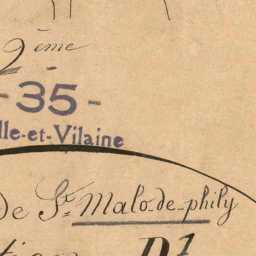 2ème
- 35 -
lle-et-Vilaine
de St Malo-de-phily
D1